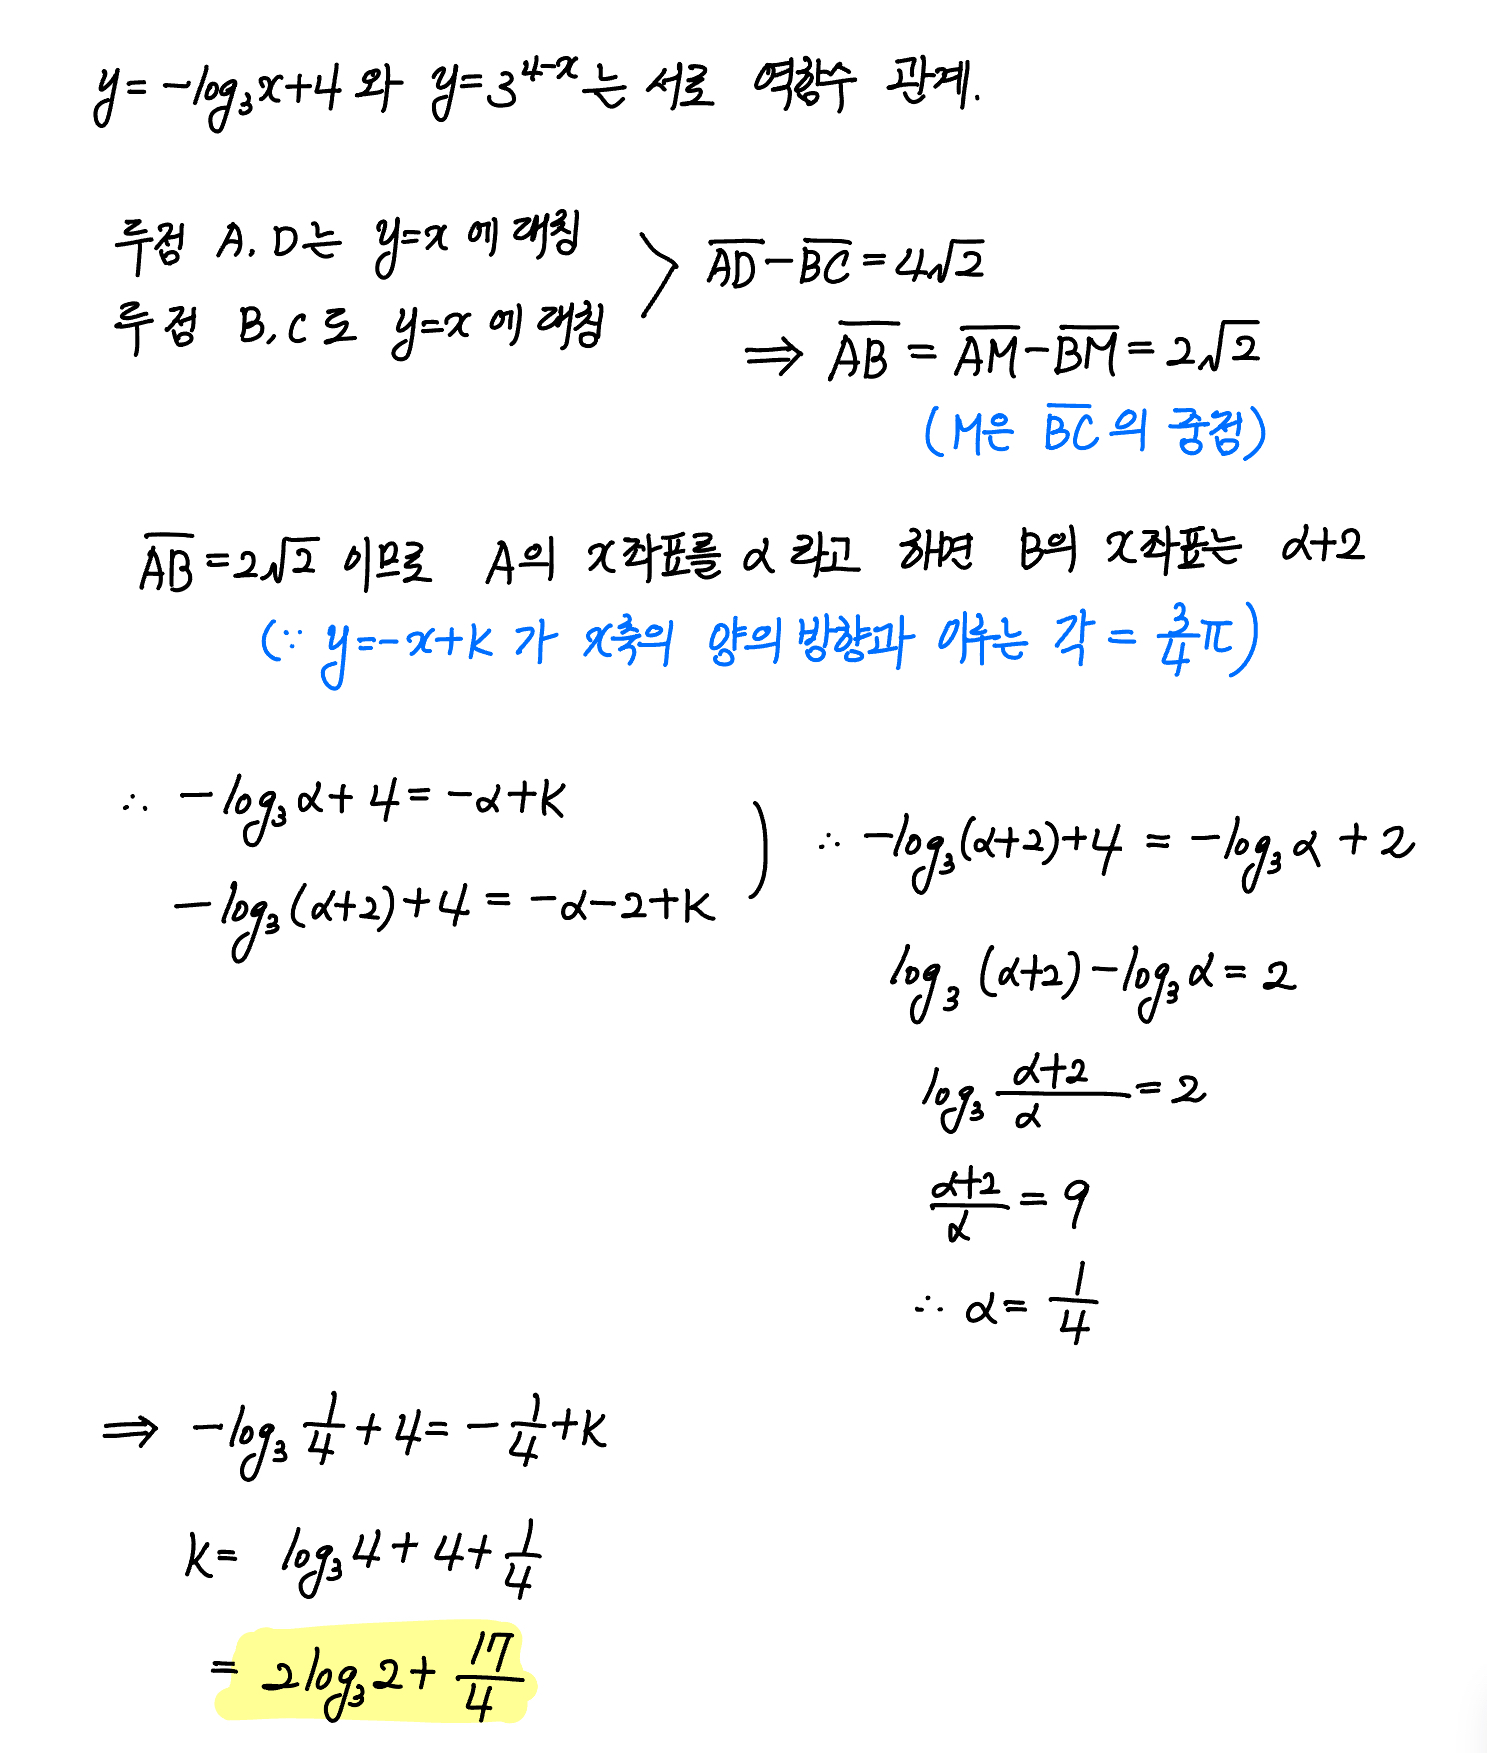 y = -log₃x+4 와 y=3^{4-x} 는 서로 역함수 관계.
두점 A, D는 y=x 에 대칭
두점 B, C 도 y=x 에 대칭
> \overline{AD} - \overline{BC} = 4√2
⇒ \overline{AB} = \overline{AM} - \overline{BM} = 2√2
(M은 \overline{BC} 의 중점)
\overline{AB} = 2√2 이므로 A의 x좌표를 α 라고 하면 B의 x좌표는 α+2
(∵ y=-x+k 가 x축의 양의 방향과 이루는 각 = \frac{3}{4}π)
∴ -log₃α + 4 = -α+k
-log₃(α+2)+4 = -α-2+k
∴ -log₃(α+2)+4 = -log₃α + 2
log₃(α+2) - log₃α = 2
log₃\frac{α+2}{α} = 2
\frac{α+2}{α} = 9
∴ α = \frac{1}{4}
⇒ -log₃\frac{1}{4} + 4 = -\frac{1}{4} + k
k = log₃4 + 4 + \frac{1}{4}
= 2log₃2 + \frac{17}{4}